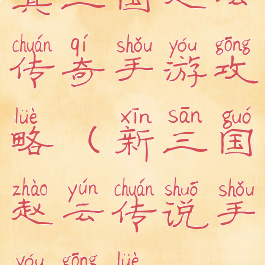 chuán qí shǒu yóu gōng
传奇手游攻
lüè xīn sān guó
略（新三国
zhào yún chuán shuō shǒu
赵云传说手
yóu gōng lüè